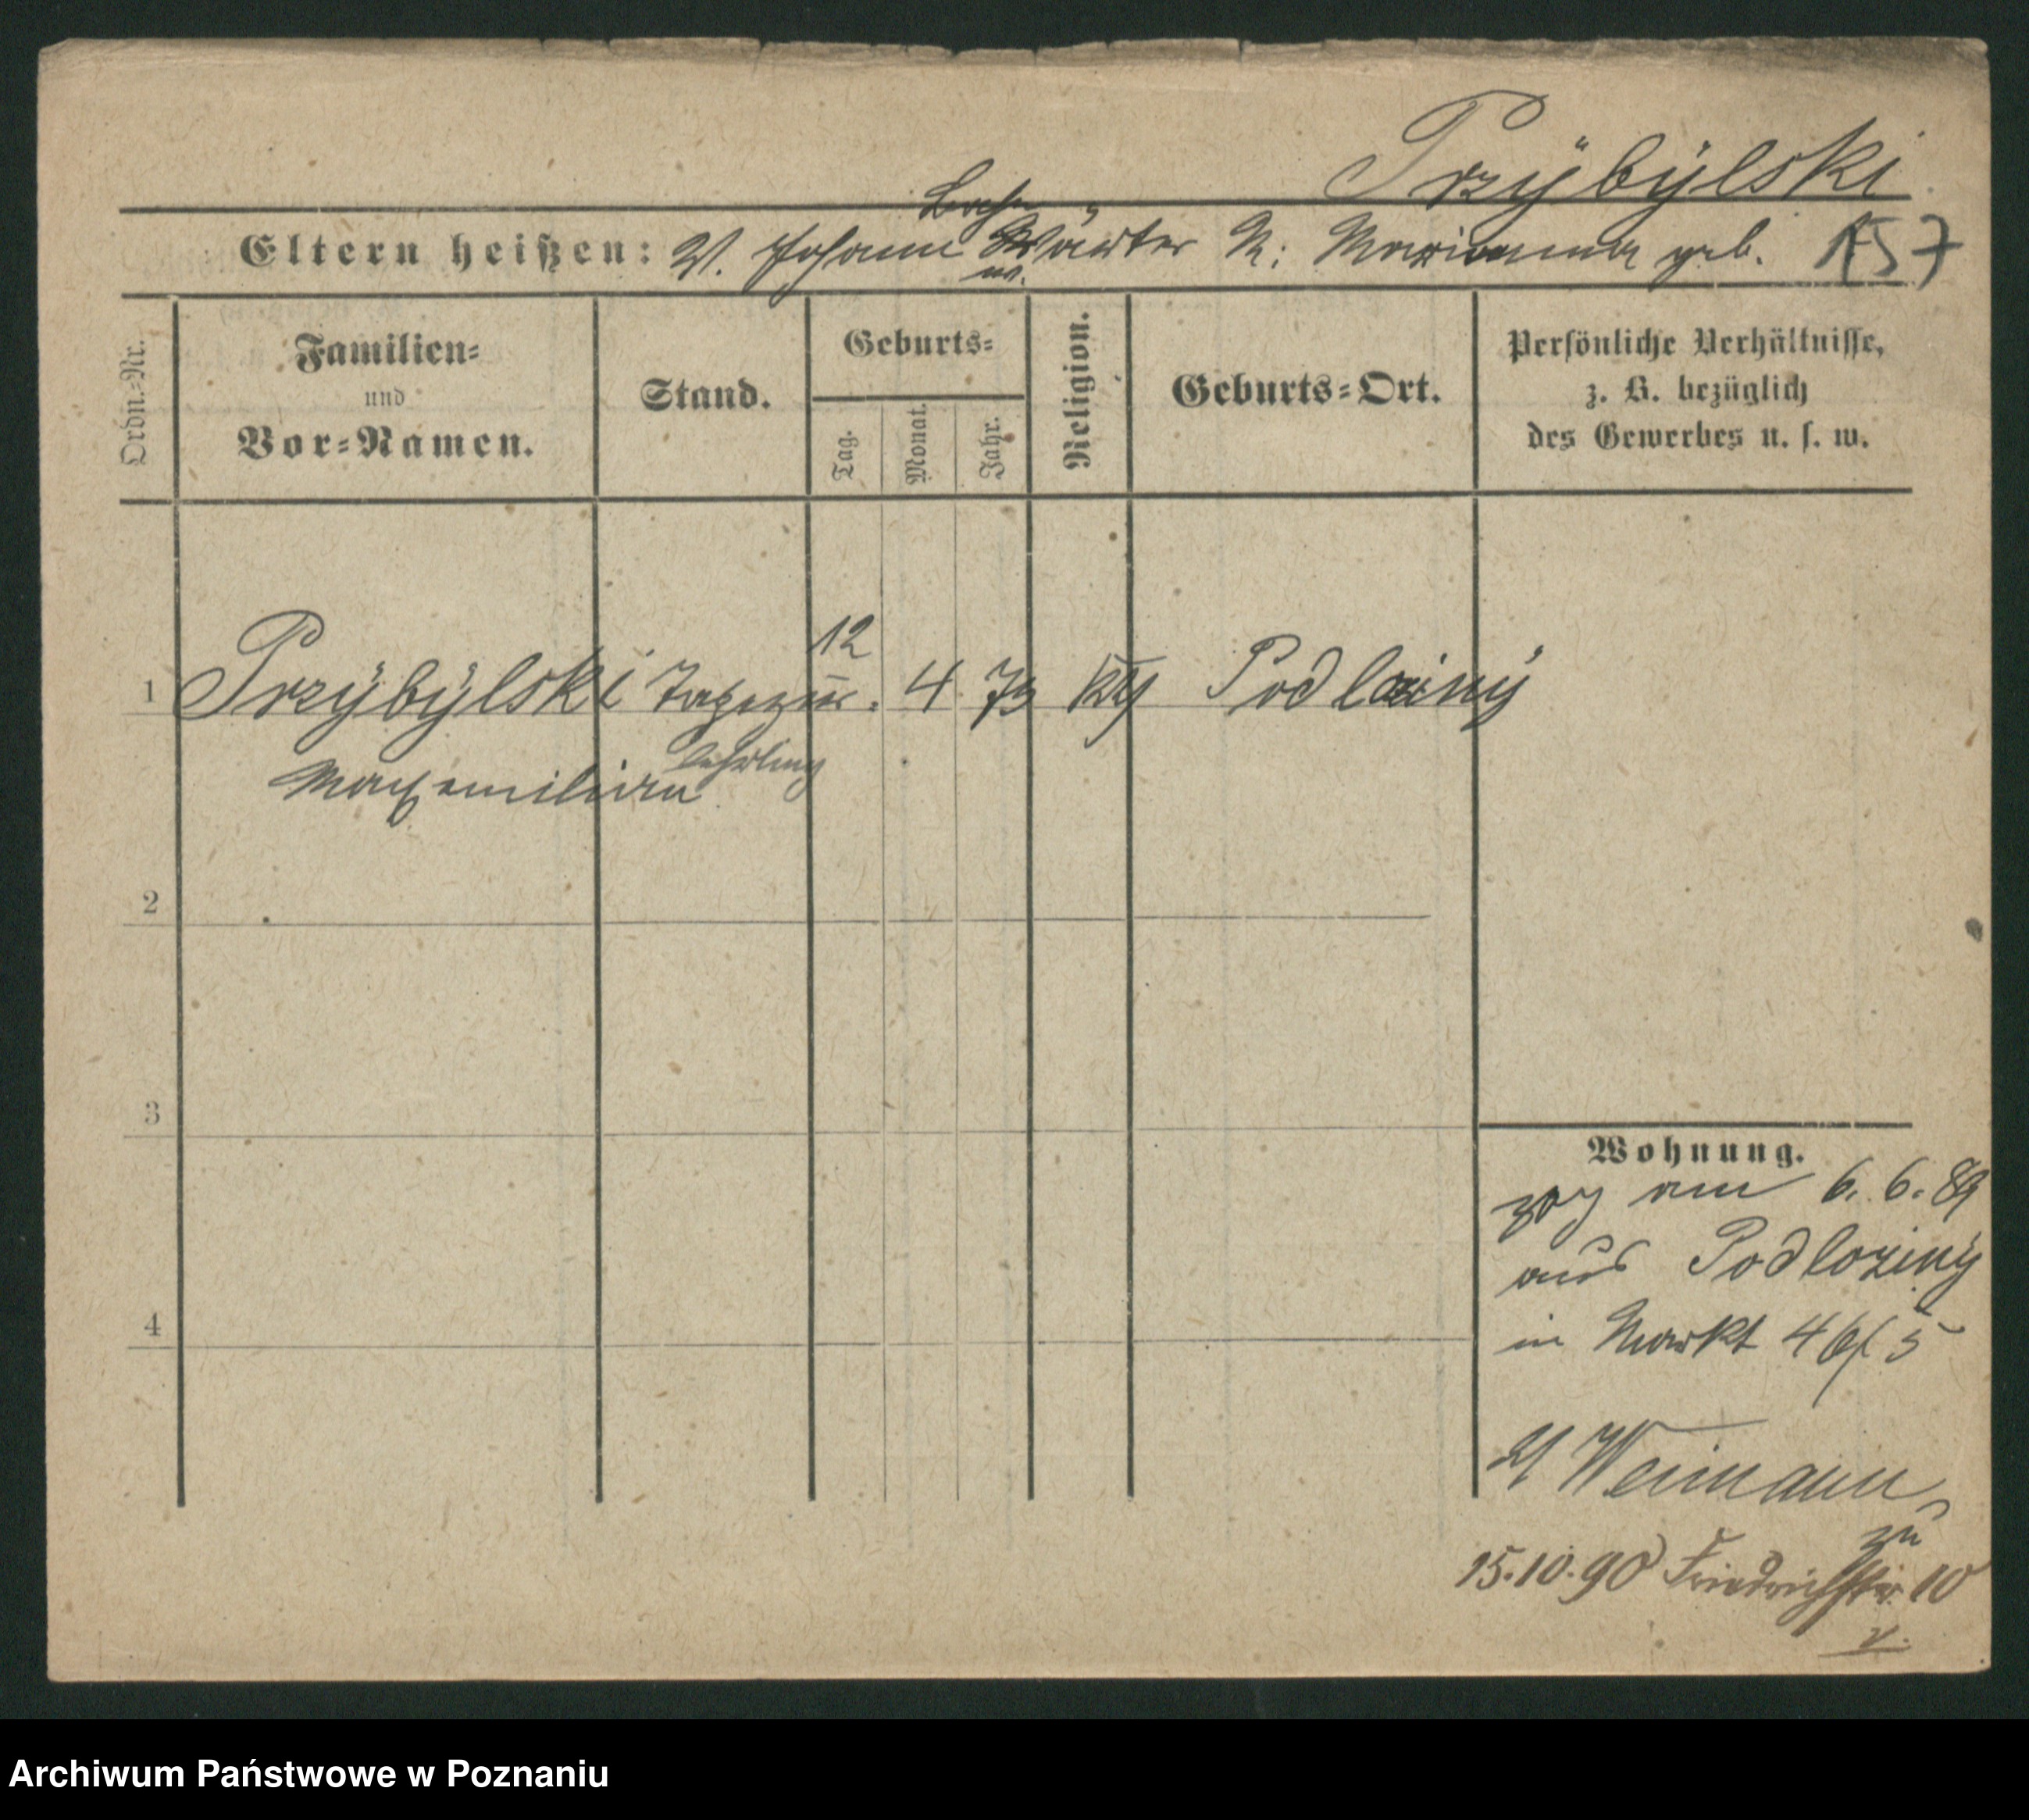 Przÿbÿlski
Bahn
Eltern heißen: V. Johann Wärter M: Marianna geb. 157
Ordn.-Nr.
Familien-
und
Vor-Namen.
Stand.
Geburts-
Tag.
Monat.
Jahr.
Religion.
Geburts-Ort.
Persönliche Verhältnisse,
z. B. bezüglich
des Gewerbes u. s. w.
12
1 Przÿbÿlski Tapezier. 4 73 Podloziny
lehrling
Maxemilian
2
3
4
Wohnung.
zog am 6. 6. 89
aus Podloziny
in Markt 46/5
Weimann
zu
15.10.90 Friedrichstr. 10
Archiwum Państwowe w Poznaniu